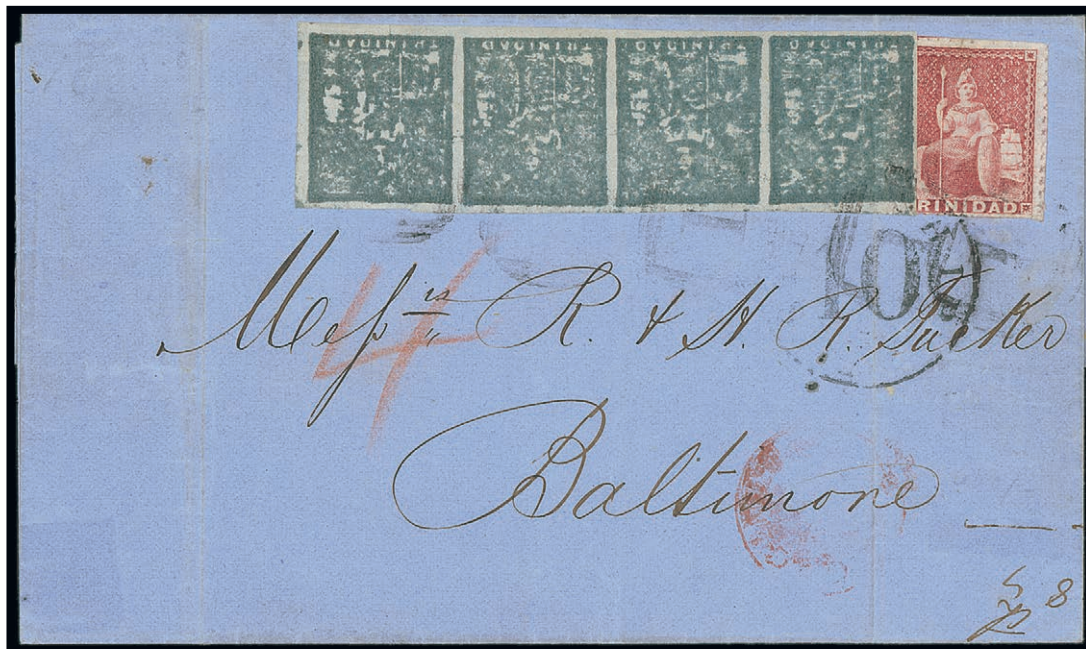 TRINIDAD TRINIDAD TRINIDAD TRINIDAD
RINIDAD
10
4
Mess.rs R. & H. R. Tucker
Baltimore
8